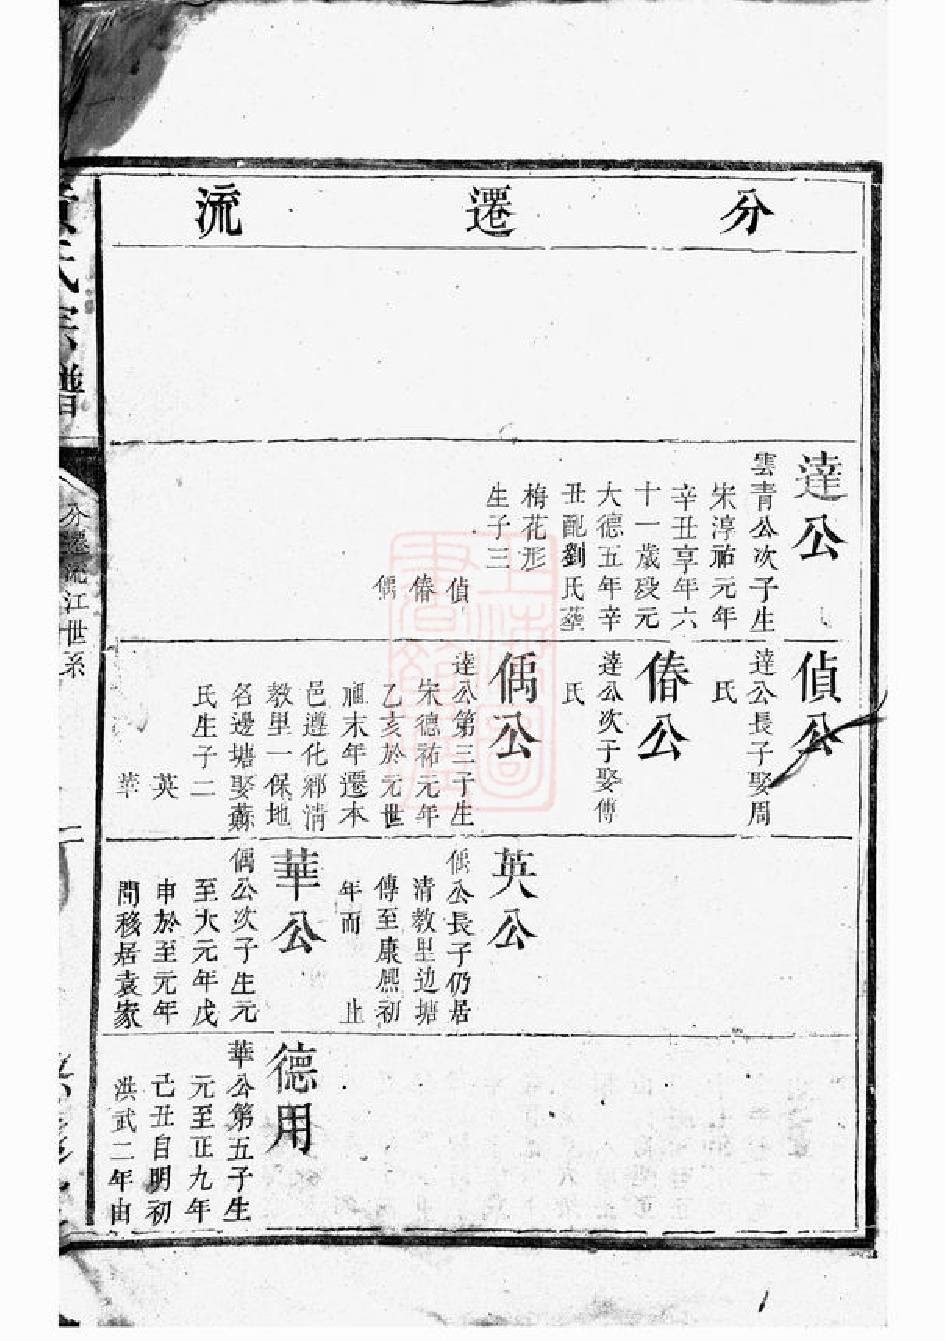 分遷流
達公
雲青公次子生
宋淳祐元年
辛丑享年六
十一歲殁元
大德五年辛
丑配劉氏葬
梅花形
生子三
偵
偆
偶
偵公
達公長子娶周
氏
偆公
達公次子娶傅
氏
偶公
達公第三子生
宋德祐元年
乙亥於元世
祖末年遷本
邑遵化鄉清
教里一保地
名邊塘娶蘇
氏生子二
英
華
英公
偶公長子仍居
清教里边塘
傳至康熈初
年而止
華公
偶公次子生元
至大元年戊
申於至元年
間移居袁家
德用
華公第五子生
元至正九年
己丑自明初
洪武二年由
氏宗譜
分遷流江世系